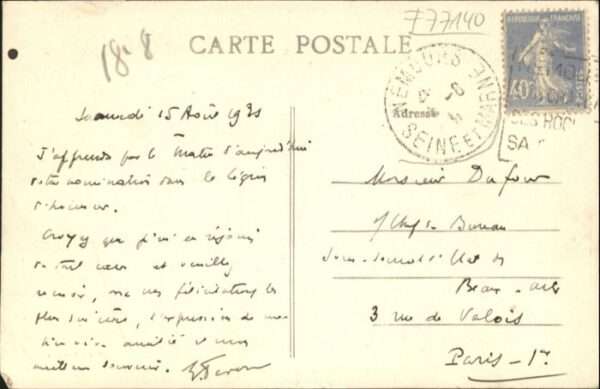 F77140
18.8
CARTE POSTALE
REPUBLIQUE FRANÇAISE
40c
NEMOURS
SEINE ET MARNE
SA
Adresse
Samedi 15 Août 1931
J'apprends par le Matin d'aujourd'hui
votre nomination dans la Légion
d'honneur.
Croyez que j'en
de tout cœur et veuillez
recevoir, avec mes félicitations les
plus sincères, l'expression de
amitié et mon
meilleur souvenir.
Monsieur Dufour
s/Chef de Bureau
Sous-Secrét. d'État des
Beaux-Arts
3 rue de Valois
Paris-1er